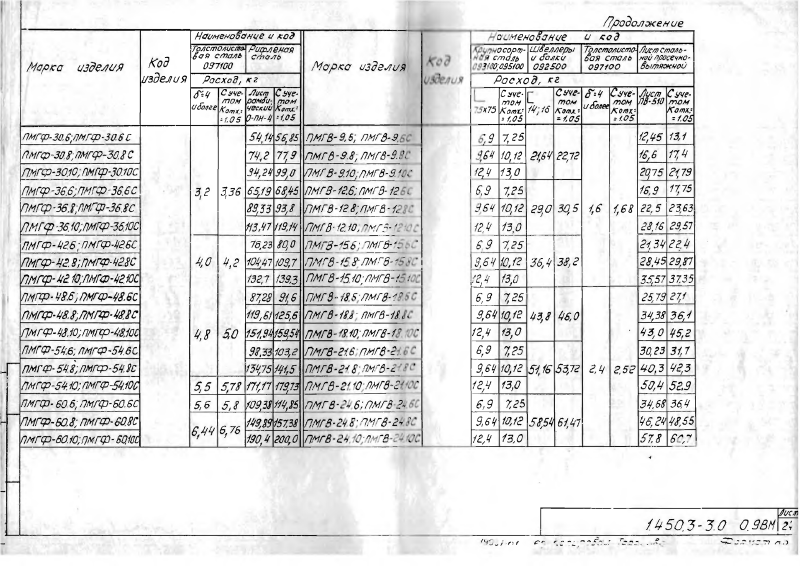 Продолжение
Марка изделия | Код изделия | Наименование и код | Марка изделия | Код изделия | Наименование и код
Толстолистовая сталь 097100 | Рифленая сталь | Крупносорт-ная сталь 093100, 095100 | Швеллеры и балки 092500 | Толстолистовая сталь 097100 | Лист сталь-ной просечно-вытяжной
Расход, кг | Расход, кг
δ=4 и более | С уче-том Котх.=1.05 | Лист ромби-ческий О-ПН-4 | С уче-том Котх.=1.05 | 75х75 | С уче-том Котх.=1.05 | 14; 16 | С уче-том Котх.=1.05 | δ=4 и более | С уче-том Котх.=1.05 | Лист ПВ-510 | С уче-том Котх.=1.05
ПМГФ-30.6; ПМГФ-30.6С | 54,14 | 56,85 | ПМГВ-9.6; ПМГВ-9.6С | 6,9 | 7,25 | 12,45 | 13,1
ПМГФ-30.8; ПМГФ-30.8С | 74,2 | 77,9 | ПМГВ-9.8; ПМГВ-9.8С | 9,64 | 10,12 | 21,64 | 22,72 | 16,6 | 17,4
ПМГФ-30.10; ПМГФ-30.10С | 94,24 | 99,0 | ПМГВ-9.10; ПМГВ-9.10С | 12,4 | 13,0 | 20,75 | 21,79
ПМГФ-36.6; ПМГФ-36.6С | 3,2 | 3,36 | 65,19 | 68,45 | ПМГВ-12.6; ПМГВ-12.6С | 6,9 | 7,25 | 16,9 | 17,75
ПМГФ-36.8; ПМГФ-36.8С | 89,33 | 93,8 | ПМГВ-12.8; ПМГВ-12.8С | 9,64 | 10,12 | 29,0 | 30,5 | 1,6 | 1,68 | 22,5 | 23,63
ПМГФ-36.10; ПМГФ-36.10С | 113,47 | 119,14 | ПМГВ-12.10; ПМГВ-12.10С | 12,4 | 13,0 | 28,16 | 29,57
ПМГФ-42.6; ПМГФ-42.6С | 76,23 | 80,0 | ПМГВ-15.6; ПМГВ-15.6С | 6,9 | 7,25 | 21,34 | 22,4
ПМГФ-42.8; ПМГФ-42.8С | 4,0 | 4,2 | 104,47 | 109,7 | ПМГВ-15.8; ПМГВ-15.8С | 9,64 | 10,12 | 36,4 | 38,2 | 28,45 | 29,87
ПМГФ-42.10; ПМГФ-42.10С | 132,7 | 139,3 | ПМГВ-15.10; ПМГВ-15.10С | 12,4 | 13,0 | 35,57 | 37,35
ПМГФ-48.6; ПМГФ-48.6С | 87,28 | 91,6 | ПМГВ-18.6; ПМГВ-18.6С | 6,9 | 7,25 | 25,79 | 27,1
ПМГФ-48.8; ПМГФ-48.8С | 119,61 | 125,6 | ПМГВ-18.8; ПМГВ-18.8С | 9,64 | 10,12 | 43,8 | 46,0 | 34,38 | 36,1
ПМГФ-48.10; ПМГФ-48.10С | 4,8 | 5,0 | 151,94 | 159,54 | ПМГВ-18.10; ПМГВ-18.10С | 12,4 | 13,0 | 43,0 | 45,2
ПМГФ-54.6; ПМГФ-54.6С | 98,33 | 103,2 | ПМГВ-21.6; ПМГВ-21.6С | 6,9 | 7,25 | 30,23 | 31,7
ПМГФ-54.8; ПМГФ-54.8С | 134,75 | 141,5 | ПМГВ-21.8; ПМГВ-21.8С | 9,64 | 10,12 | 51,16 | 53,72 | 2,4 | 2,52 | 40,3 | 42,3
ПМГФ-54.10; ПМГФ-54.10С | 5,5 | 5,78 | 171,17 | 179,73 | ПМГВ-21.10; ПМГВ-21.10С | 12,4 | 13,0 | 50,4 | 52,9
ПМГФ-60.6; ПМГФ-60.6С | 5,6 | 5,8 | 109,38 | 114,85 | ПМГВ-24.6; ПМГВ-24.6С | 6,9 | 7,25 | 34,68 | 36,4
ПМГФ-60.8; ПМГФ-60.8С | 6,44 | 6,76 | 149,89 | 157,38 | ПМГВ-24.8; ПМГВ-24.8С | 9,64 | 10,12 | 58,54 | 61,47 | 46,24 | 48,55
ПМГФ-60.10; ПМГФ-60.10С | 190,4 | 200,0 | ПМГВ-24.10; ПМГВ-24.10С | 12,4 | 13,0 | 57,8 | 60,7
1.450.3-3.0 0.98М | Лист 24
Формат